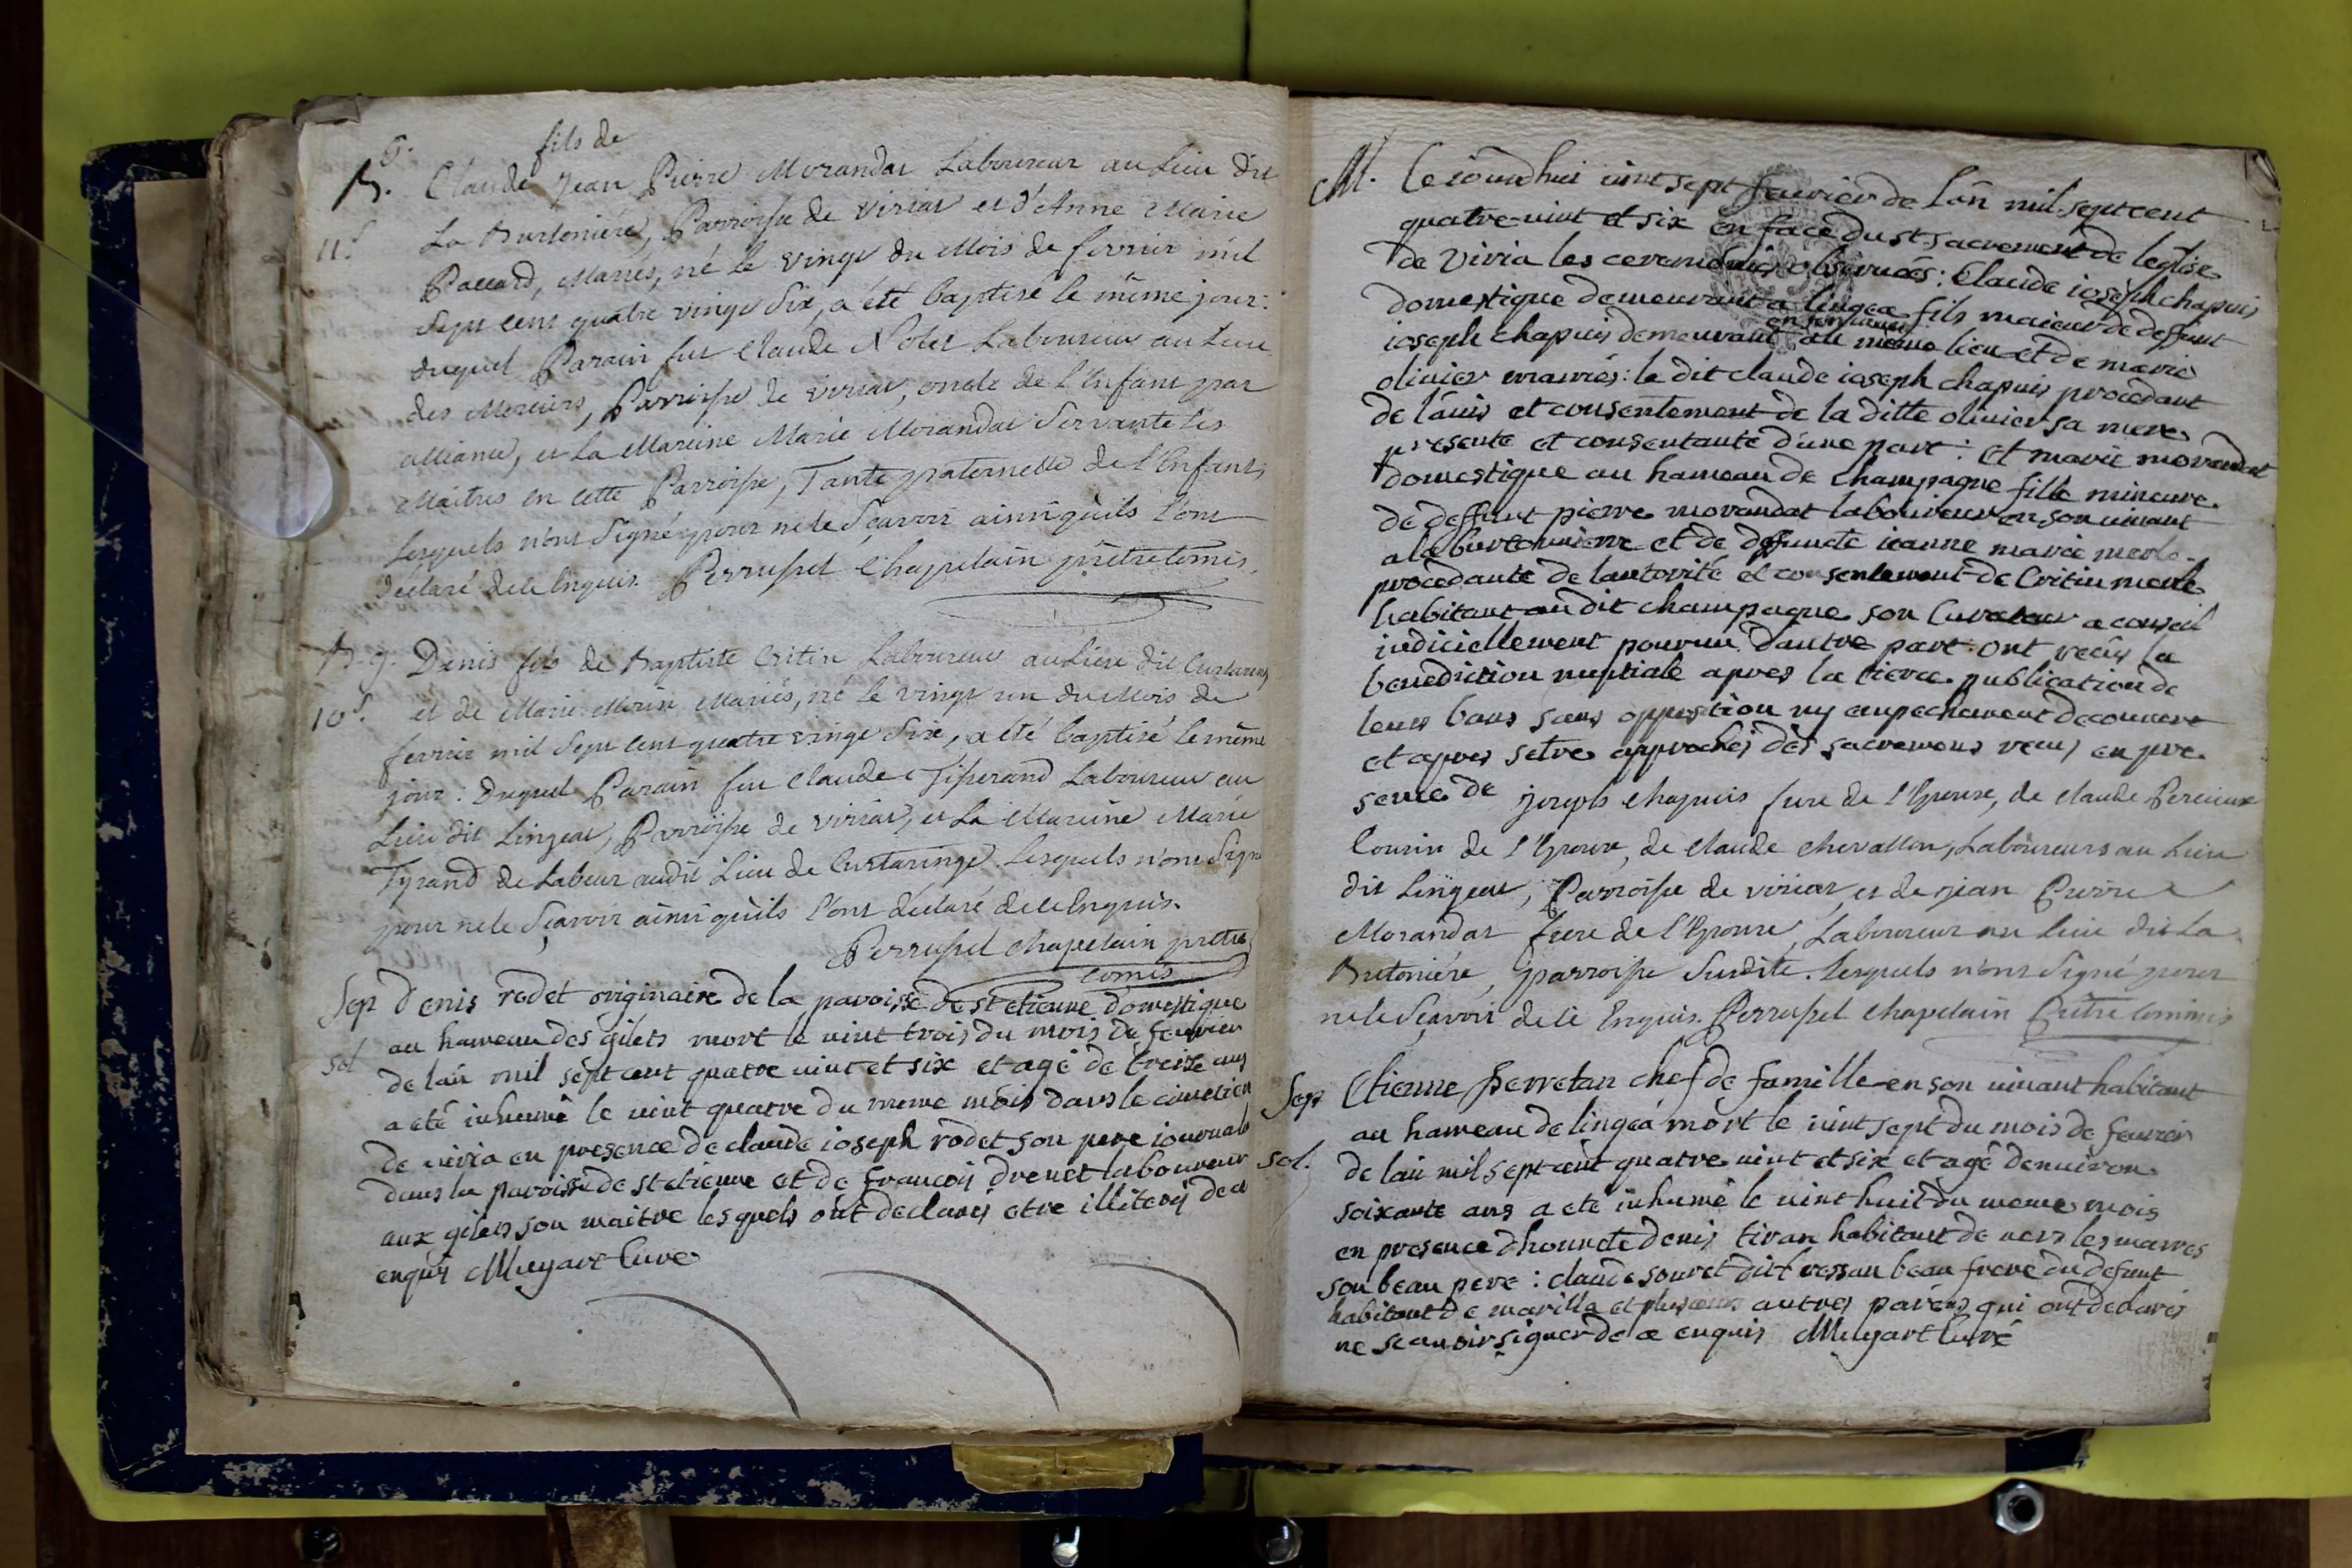 fils de
B. G. Claude Jean Pierre Morandat Laboureur au Lieu dit
11.s La Burtoniére, Parroisse de viriat et d'Anne Marie
Paccard, Mariés, né le vingt du Mois de fevrier mil
Sept cent quatre vingt Six, a été baptisé le même jour:
duquel Parain fut Claude Nolet Laboureur au Lieu
des Merciers, Parroisse de viriat, oncle de l'Enfant par
alliance, et La Mareine Marie Morandat Servante les
Maitres en cette Parroisse, Tante paternelle de l'Enfant,
Lesquels n'ont Signé pour ne le Sçavoir ainsi qu'ils l'ont
déclaré de ce Enquis. Perruset Chapelain prêtre Comis.
B. g. Denis fils de Baptiste Critin Laboureur au Lieu dit Curtaring
10s. et de Marie Morin Mariés, né le vingt un du Mois de
fevrier mil Sept cent quatre vingt Six, a été baptisé le même
jour: Duquel Parain fut Claude Tisserand Laboureur au
Lieu dit Lingeat, Parroisse de viriat, et La Mareine Marie
Tyrand de Labeur audit Lieu de Curtaringe. Lesquels n'ont Signé
pour ne le Sçavoir ainsi qu'ils l'ont déclaré de ce Enquis.
Perruset chapelain prêtre
Comis
Sep Denis rodet originaire de la paroisse de st etienne domestique
au hameau des gilets mort le vint trois du mois de fevrier
sol de lan mil sept cent quatre vint et six et agé de treize ans
a eté inhumé le vint quatre du meme mois dans le cimetiere
de viria en presence de claude ioseph rodet son pere iournalie
dans la paroisse de st etienne et de francois drevet laboureur
aux gilets son maitre lesquels ont declarés etre illiterés de ce
enquis Muyart Curé
M. Ce iourdhui vint sept fevrier de l'an mil sept cent
quatre-vint et six en face du st. sacrement de leglise
de Viria les ceremonies observées: Claude ioseph chapuis
domestique demeurant a lingea fils maieur de deffunt
en son vivant
ioseph chapuis demeurant au meme lieu et de marie
olivier mariés: le dit claude ioseph chapuis procedant
de lavis et consentement de la ditte olivier sa mere
presente et consentante d'une part: et marie morandat
domestique au hameau de Champagne fille mineure
de deffunt pierre morandat laboureur en son vivant
a la burtoniere et de defuncte ieanne marie merle
procedante de lautorité et consentement de Critin merle
habitant au dit champagne son Curateur a conseil
iudiciellement pourvu dautre part: ont reçus la
benediction nuptiale apres la tierce publication de
leurs bans sans opposition ny empechement decouvert
et apres setre approchés des sacremens reçus en pre
sence de joseph chapuis frere de l'Epoux, de claude Perrieux
Cousin de l'Epoux, de claude chevallon, Laboureurs au Lieu
dit Lingeat, Parroisse de viriat, et de jean Pierre
Morandat frere de l'Epouse, Laboureur au lieu dit La
Burtoniére, parroisse Susdite. Lesquels n'ont Signé pour
ne le Sçavoir de ce Enquis. Perruset chapelain Prêtre Commis
Sep Etienne perretan chef de famille en son vivant habitant
au hameau de lingea mort le vint sept du mois de fevrier
sol. de lan mil sept cent quatre vint et six et agé denviron
soixante ans a eté inhumé le vint huit du meme mois
en presence dhonnete denis tiran habitant de vers les mares
son beau pere: claude souret dit bressan beau frere du defunt
habitant de marilla et plusieurs autres parens qui ont declarés
ne scavoir signer de ce enquis Muyart Curé